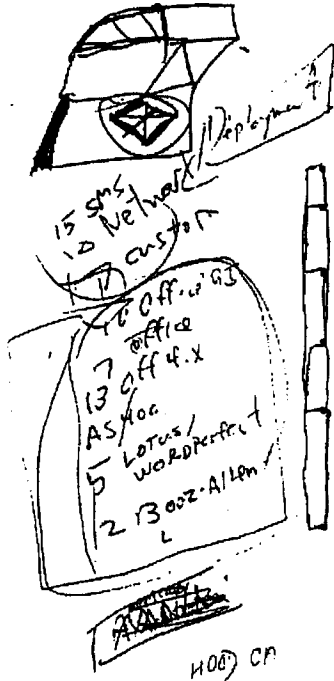 Deployment
15 SMS
10 Network
custom
16 Office 93
7 office
13 Off 4.x
AS400
5 LOTUS/
WORDPerfect
2 Booz-Allen